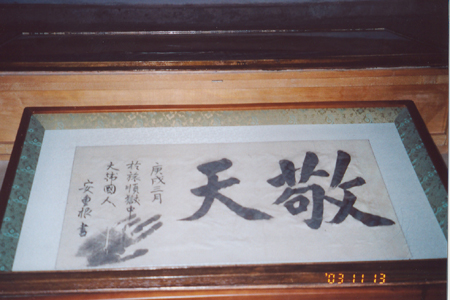 敬天
庚戌三月
於旅順獄中
大韓國人
安重根書
'03 11 13